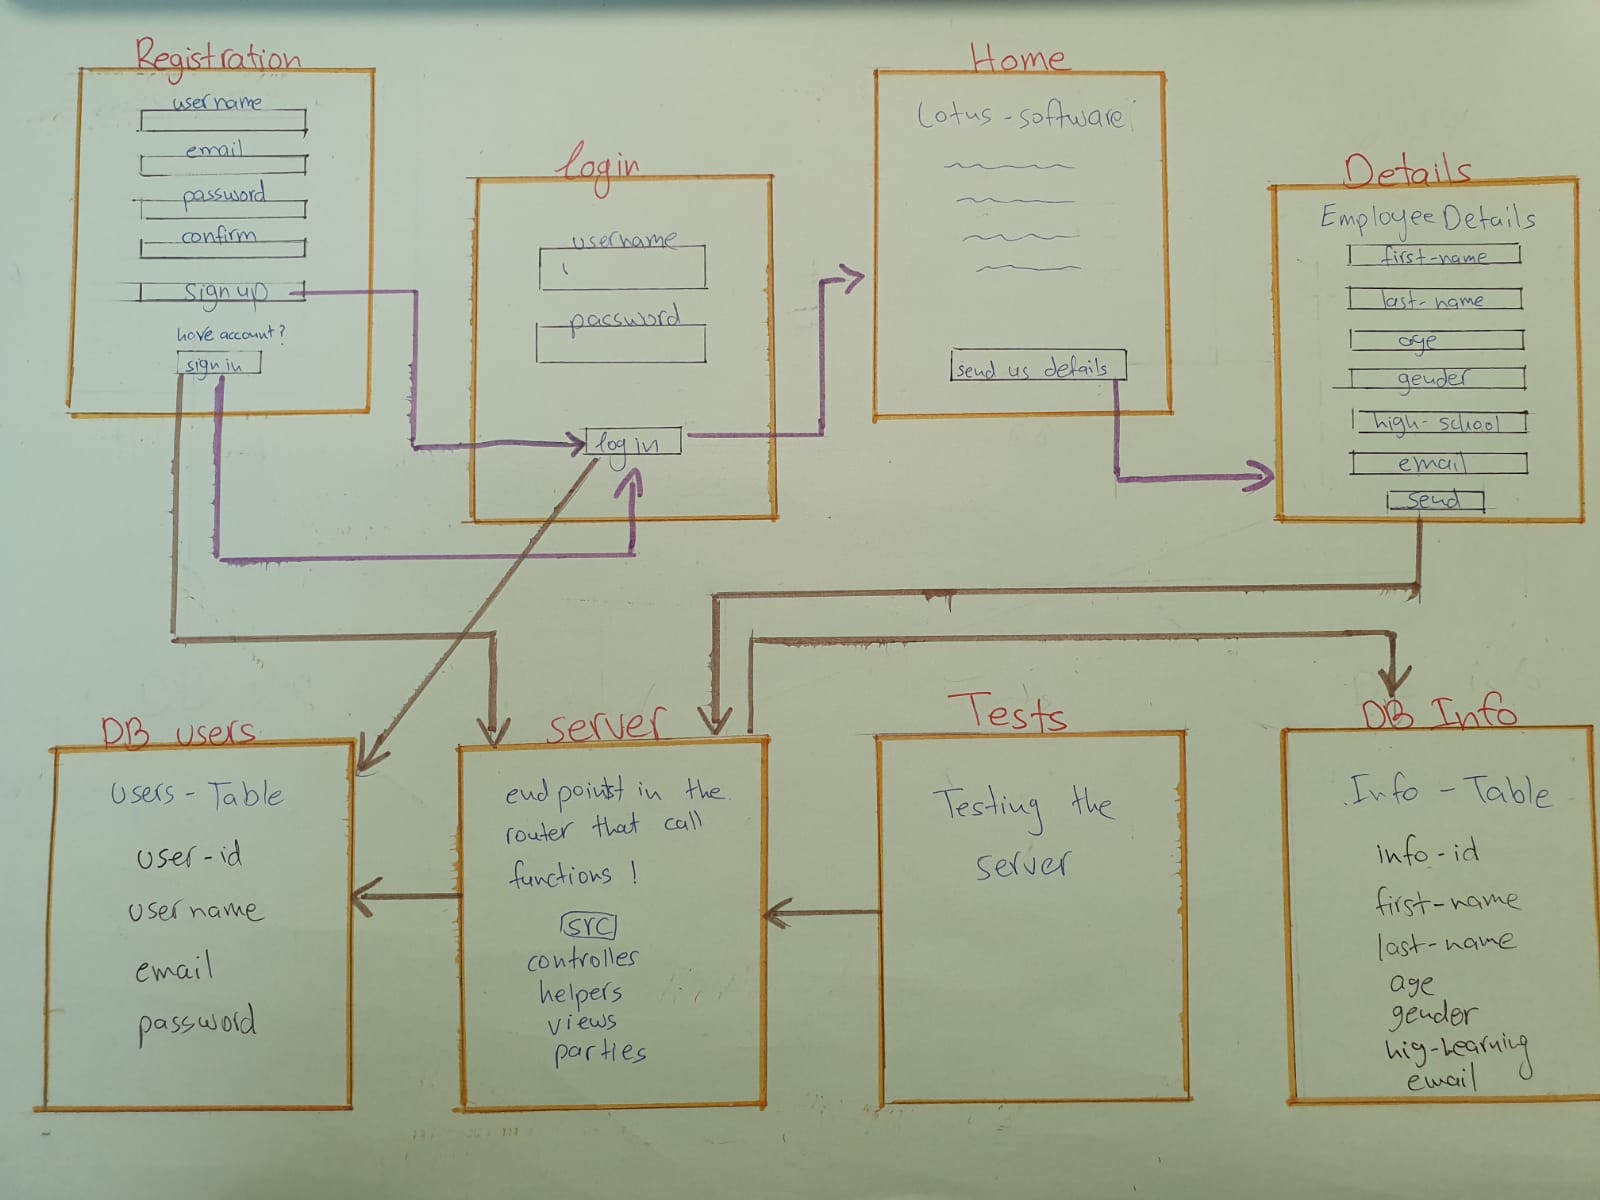 Registration
username
email
password
confirm
sign up
have account?
sign in
login
username
password
log in
Home
Lotus-software
send us details
Details
Employee Details
first-name
last-name
age
gender
high-school
email
send
DB users
users-Table
user-id
username
email
password
server
endpoint in the
router that call
functions !
src
controlles
helpers
views
parties
Tests
Testing the
server
DB Info
Info-Table
info-id
first-name
last-name
age
gender
hig-Learning
email